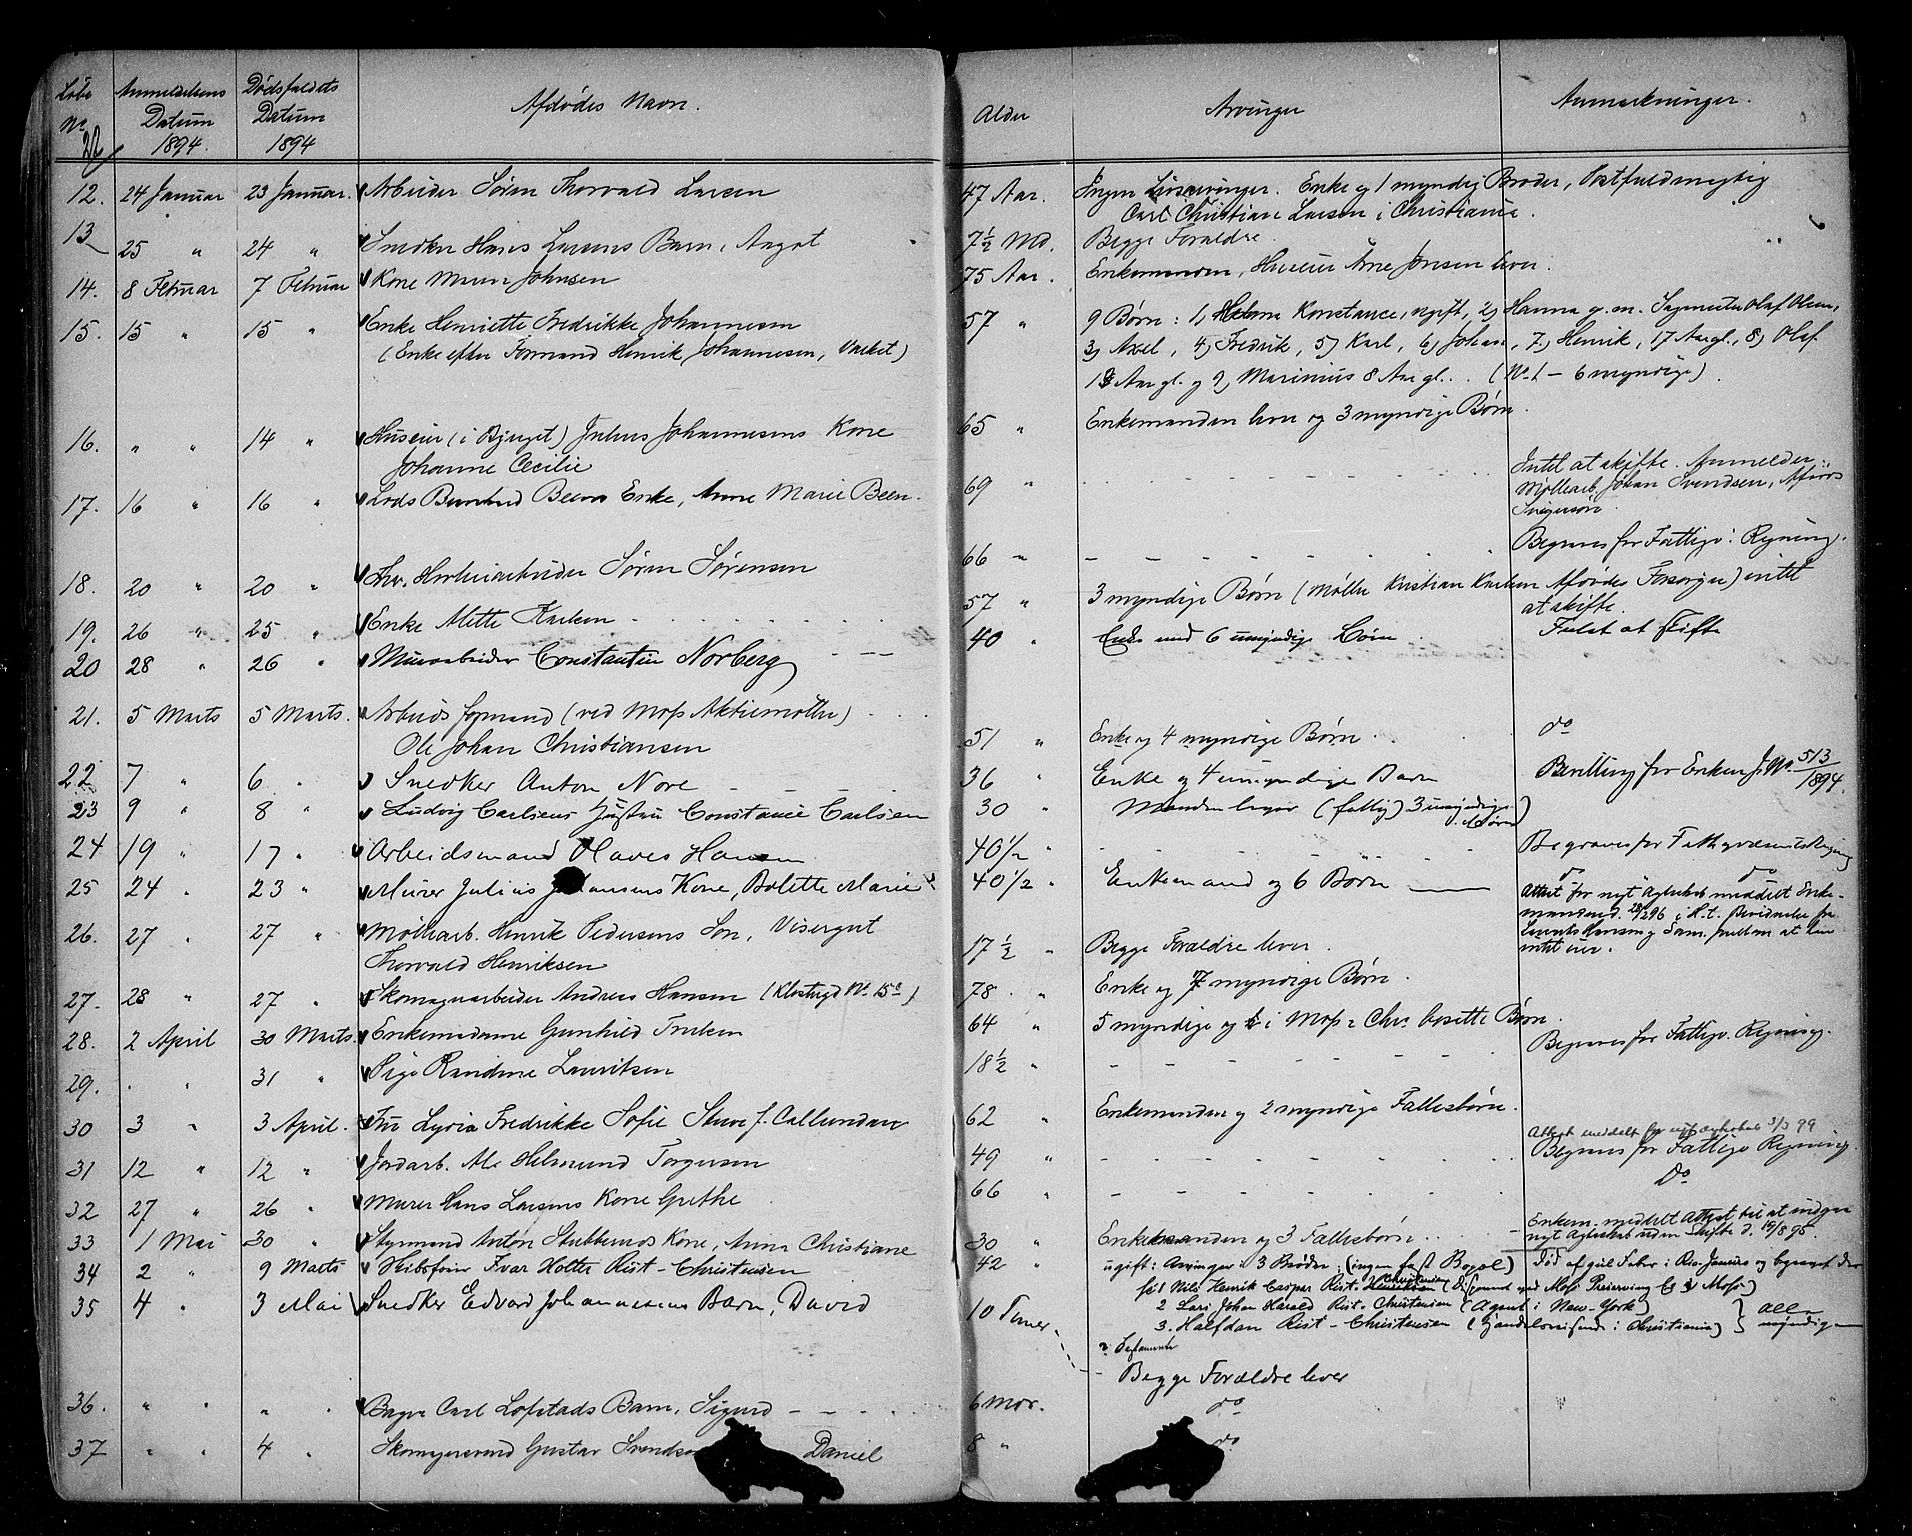 Løbe No. Anmeldelsens Datum 1894. Dødsfaldets Datum 1894 Afdødes Navn. Alder Arvinger Anmærkninger.
12. 24 Januar 23 Januar. Arbeider Søren Thorvald Larsen 47 Aar. Ingen Livsarvinger. Enke og 1 myndig Broder, Postfuldmegtig
Carl Christian Larsen i Christiania.
13 25 " 24 " Snedker Hans Larsens Barn, Aagot 7½ Md. Begge Forældre
14. 8 Februar 7 Februar Kone Maren Johnsen 75 Aar. Enkemanden, Huseier Arne Jonsen lever.
15. 15 " 15 " Enke Henriette Fredrikke Johannesen 57 " 9 Børn: 1, Helena Konstance, ugift, 2, Hanna g. m. Sagmester Olaf Olsen,
(Enke efter Formand Henrik Johannesen, Værket) 3, Axel, 4, Fredrik, 5, Karl, 6, Johan, 7, Henrik, 17 Aar gl., 8, Olaf
13 Aar gl. og 9, Marinius 8 Aar gl. . (No 1 - 6 myndige).
16. " " 14 " Huseier (i Bjerget) Julius Johannesens Kone 65 " Enkemanden lever og 3 myndige Børn.
Johanne Cecilie
17. 16 " 16 " Lods Berntund Beens Enke, Anne Marie Been. 69 " Intet at skifte. Anmelder:
Møllearb. Johan Svendsen, Afdødes
Svigersøn.
18. 20 " 20 " Søren Sørensen 66 " Begraves for Fattigv: Regning.
19. 26 " 25 " Enke Mette Karlsen 57 " 3 myndige Børn (Møller Kristian Karlsen Afdødes Forsørger) intet
at skifte.
20 28 " 26 " Murarbeider Constantin Norberg 40 " Enke med 6 umyndige Børn Intet at skifte
21. 5 Marts 5 Marts. Arbeidsformand (ved Moss Aktiemølle)
Ole Johan Christiansen 51 " Enke og 4 myndige Børn. do
22 7 " 6 " Snedker Anton Nore 36 " Enke og 4 umyndige Barn Bevilling for Enken J. No. 513/1894.
23 9 " 8 " Ludvig Carlsens Hustru Constance Carlsen 30 " Manden lever (fattig) 3 umyndige Børn)
24 19 " 17 " Arbeidsmand Olaves Hansen 40 1/2 " Begraves for Fattigvæsenets Regning
25 24 " 23 " Murer Julius Johansens Kone, Bolette Marie 40 1/2 " Enkemand og 6 Børn do do
Attest for nyt Ægteskab meddelt Enke-
manden d. 28/2 96
26. 27 " 27 " Møllearb. Henrik Pedersens Søn, Visergut 17½ " Begge Forældre lever.
Thorvald Henriksen
27. 28 " 27 " Skomagerarbeider Andreas Hansen (Klostergd No. 15c) 78 " Enke og 7 myndige Børn.
28. 2 April 30 Marts. Enkemadame Gunhild 64 " 5 myndige og i Moss Børn.
29. " " 31 " Pige Randine Lauritsen 18½ " Begraves for Fattigv. Regning.
30 3 " 3 April. Fru Lyvia Fredrikke Sofie Stuve f. Callundan 62 " Enkemanden og 2 myndige Fællesbørn.
Attest meddelt for nyt ægteskab 3/3 99
31 12 " 12 " Jordarb. Ole Helmund Torgersen 49 " Begraves for Fattigv Regning
32 27 " 26 " Murer Hans Larsens Kone Grethe 66 " Do
33 1 Mai 30 " Styrmand Anton Stubberuds Kone, Anna Christiane 30 " Enkemanden og 3 Fællesbørn
Enkem. meddelt Attest til at indgaa
nyt Ægteskab uden Skifte d. 19/8 95.
34 2 " 9 Marts Skibsfører Ivar Holter Rist-Christensen 42 " ugift: Arvinger i 3 Brødre: (ingen fast Bopæl) Død af gul Feber i Rio Janeiro og begravet der
1 Nils Henrik Casper Rist-Christensen (Disponent ved Moss Preserving Co i Moss)
2 Lars Johan Harald Rist-Christensen (Agent i New-York)
3. Halfdan Rist-Christensen (Handelsreisende i Christiania) } alle myndige
35 4 " 3 Mai Snedker Edvard Johannesens Barn, David 10 Timer
? Testamente
Begge Forældre lever
36. " " " " Bager Carl Lofstads Barn, Sigurd 6 Mdr. do
37 " " 4 " Skomagersvend Gustav Svendsen Daniel 8 " do